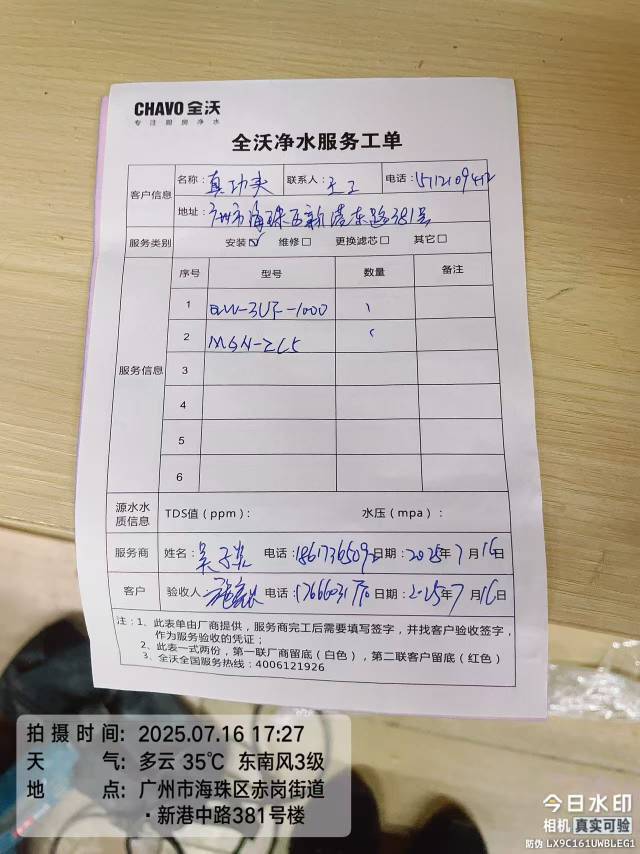 CHAVO 全沃
专注厨房净水
全沃净水服务工单
客户信息 名称：真功夫 联系人：王工 电话：
地址：广州市海珠区新港东路381号
服务类别 安装☑ 维修□ 更换滤芯□ 其它□
服务信息 序号 型号 数量 备注
1 -3UF-1000 1
2 1
3
4
5
6
源水水质信息 TDS值（ppm）： 水压（mpa）：
服务商 姓名：吴 电话： 日期：2025年7月16日
客户 验收人： 电话： 日期：2025年7月16日
注：1、此表单由厂商提供，服务商完工后需要填写签字，并找客户验收签字，
作为服务验收的凭证；
2、此表一式两份，第一联厂商留底（白色），第二联客户留底（红色）
3、全沃全国服务热线：4006121926
拍摄时间：2025.07.16 17:27
天气：多云 35℃ 东南风3级
地点：广州市海珠区赤岗街道
·新港中路381号楼
今日水印
相机 真实可验
防伪 LX9C161UWBLEG1